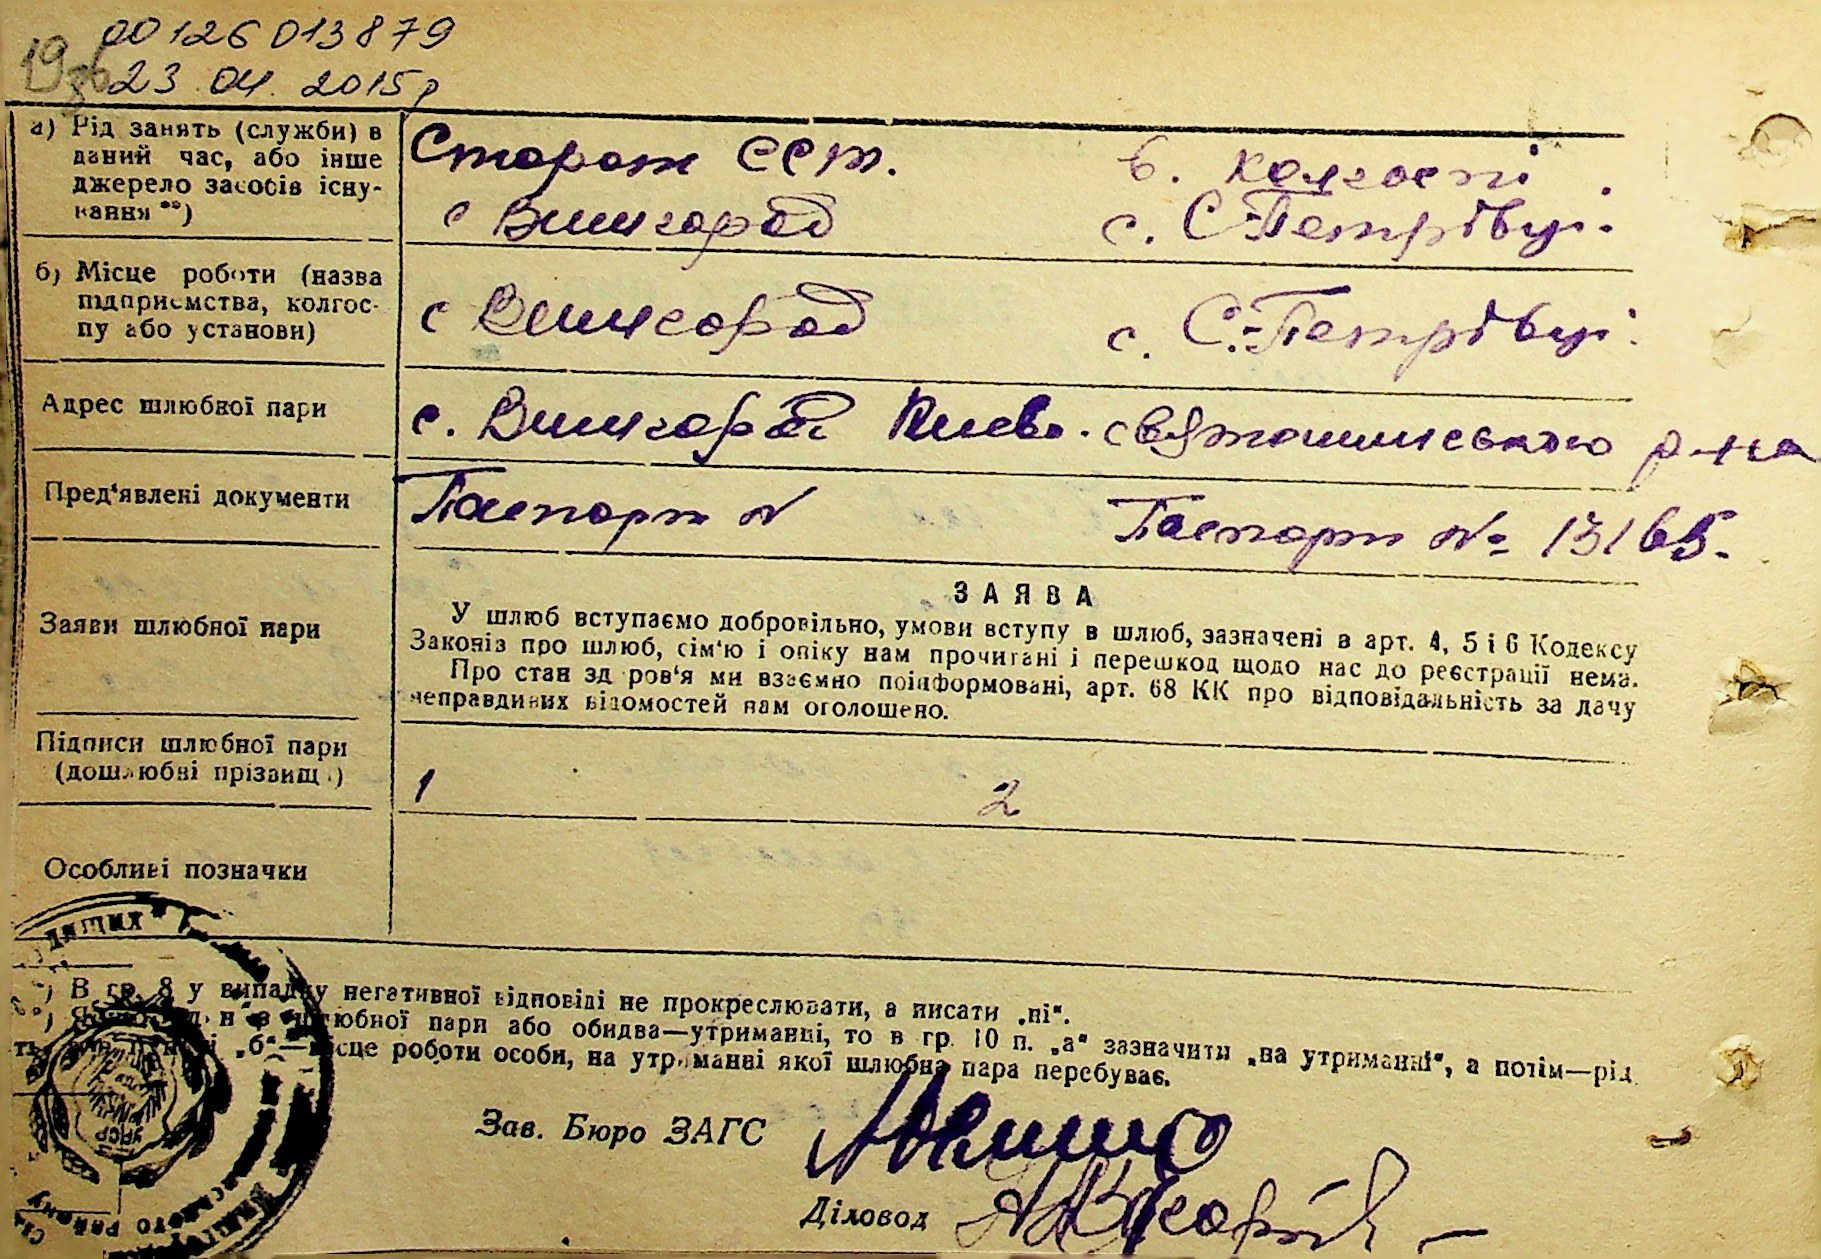 00126013879
19зв 23.04.2015р
а) Рід занять (служби) в даний час, або інше джерело засобів існування **)
Сторож ССТ. в. колгоспі.
с Вишгород с. С-Петрівці.
б) Місце роботи (назва підприємства, колгоспу або установи)
с Вишгород с. С.-Петрівці.
Адрес шлюбної пари
с. Вишгород Києво. святошинського р-на
Пред'явлені документи
Паспорт N Паспорт № 13165.
Заяви шлюбної пари
ЗАЯВА
У шлюб вступаємо добровільно, умови вступу в шлюб, зазначені в арт. 4, 5 і 6 Кодексу
Законів про шлюб, сім'ю і опіку нам прочитані і перешкод щодо нас до реєстрації нема.
Про стан здоров'я ми взаємно поінформовані, арт. 68 КК про відповідальність за дачу
неправдивих відомостей нам оголошено.
Підписи шлюбної пари
(дошлюбні прізвища)
1 2
Особливі позначки
*) В гр. 8 у випадку негативної відповіді не прокреслювати, а писати „ні“.
з шлюбної пари або обидва—утриманці, то в гр. 10 п. „а“ зазначити „на утриманні“, а потім—рід
„б“—місце роботи особи, на утриманні якої шлюбна пара перебуває.
Зав. Бюро ЗАГС
Діловод
УРСР